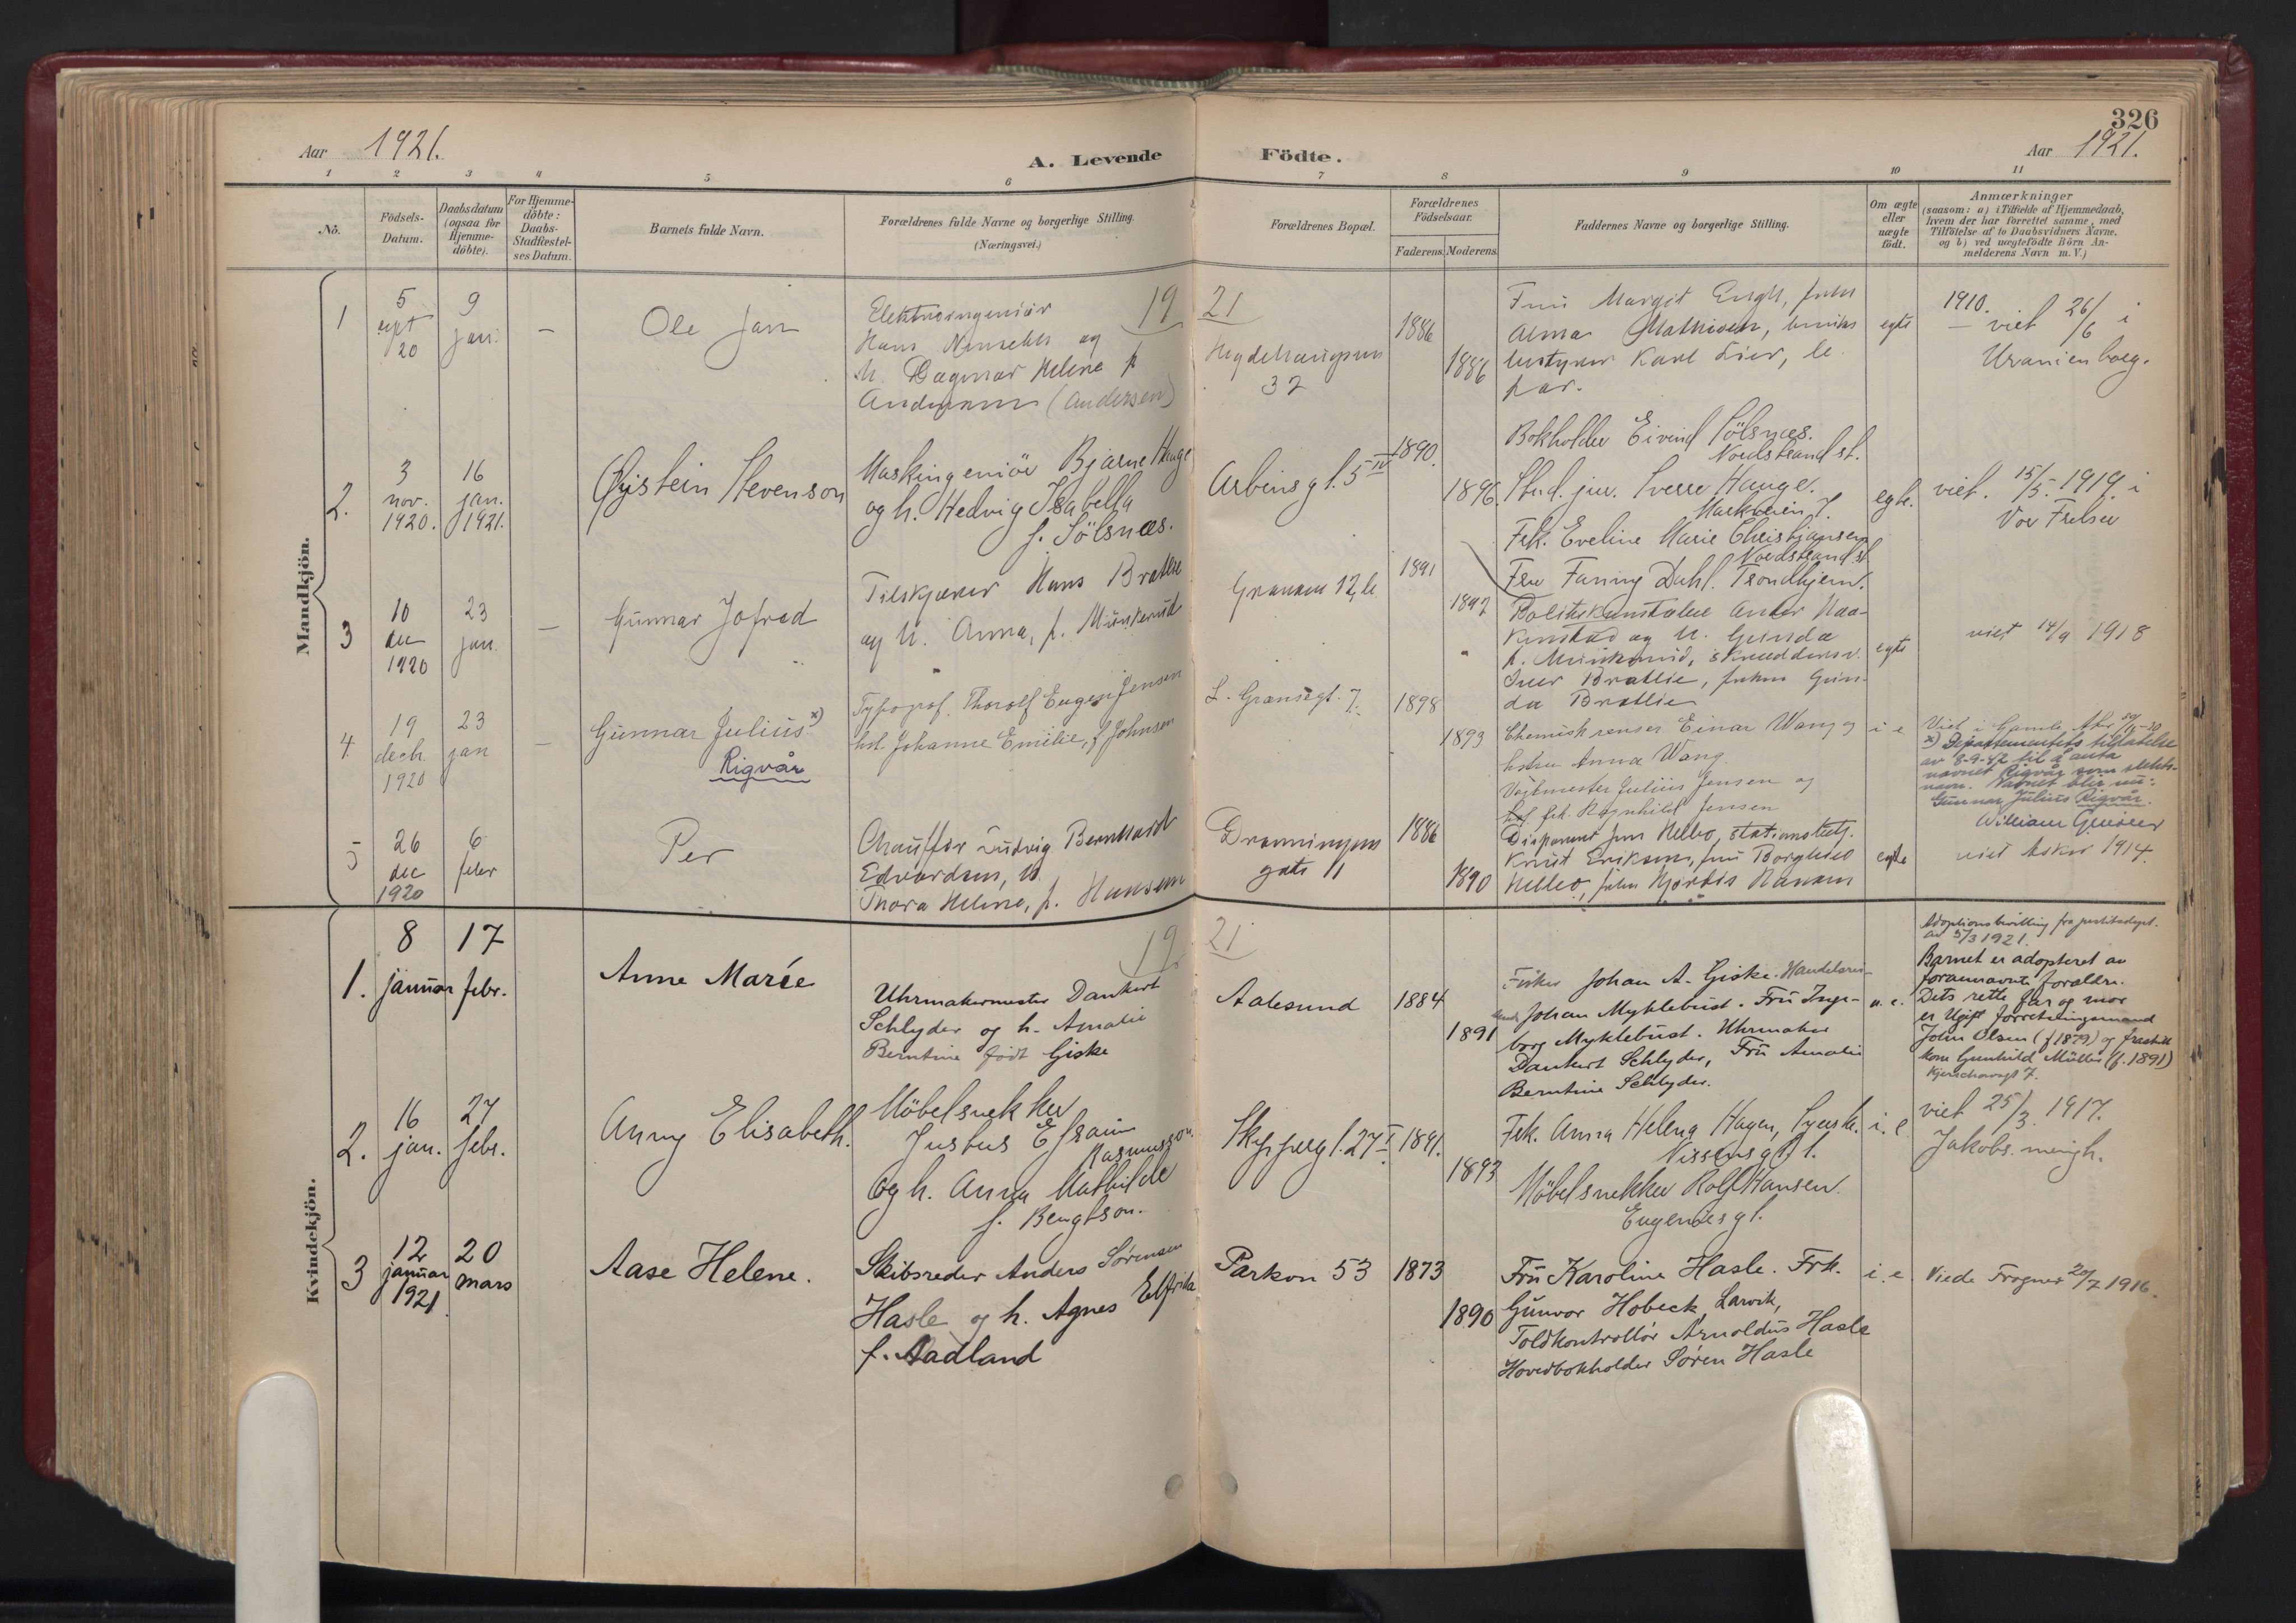 326
Aar 1921.
A. Levende Födte.
Aar 1921.
1 2 3 4 5 6 7 8 9 10 11
No.
Födsels-
Datum.
Daabsdatum
(ogsaa for
Hjemme-
döbte).
For Hjemme-
döbte:
Daabs-
Stadfæstel-
ses Datum.
Barnets fulde Navn.
Forældrenes fulde Navne og borgerlige Stilling.
(Næringsvei.)
Forældrenes Bopæl.
Forældrenes
Födselsaar.
Faderens. Moderens.
Faddernes Navne og borgerlige Stilling.
Om ægte
eller
uægte
födt.
Anmærkninger
(saasom: a) i Tilfælde af Hjemmedaab,
hvem der har forrettet samme, med
Tilföielse af to Daabsvidners Navne.
og b) ved uægtefödte Börn An-
melderens Navn m. V.)
Mandkjön.
19 21
1
5
sept
20
9
jan.
—
Ole Jan
Elektroingeniör
Hans og
h. Dagmar Helene f.
(Andersen)
Hegdehaugsvn
32
1886
1886
Fru Margit Engh, frøken
Alma Mathisen,
Karl Lier,
par.
egte
1910.
— viet 26/6 i
Uranienborg.
2.
3
nov.
1920.
16
jan.
1921.
Øystein Stevenson
Maskingeniör Bjarne Hauge
og h. Hedvig Isabella
f. Sölsnæs.
Arbinsgt. 5 IV
1890.
1896.
Bokholder Eivind Sölsnæs.
Nordstrand st.
Stud. jur. Sverre Hauge.
Markveien 7.
Frk. Eveline Marie Christiansen
Nordstrand st.
Fru Fanny Dahl. Trondhjem.
egte.
viet. 15/5. 1919. i
Vor Frelser
3
10
dec
1920
23
jan.
—
Gunnar Jofred
Tilskjærer Hans Bratlie
og h. Anna, f. Munkerud
Granaen 12,
1891
1897
Politikonstabel
og h. Gunda
f. Munkerud, skreddersv.
Iver Bratlie, frøken Gun-
da Bratlie
egte
viet 14/9 1918
4
19
decbr.
1920
23
jan
—
Gunnar Julius x)
Rigvår
Typograf. Thorolf Eugen Jensen
hst. Johanne Emilie, f. Johnsen
L. Gransegt. 7.
1898
1893
Chemisk renser Einar Wang og
hstru Anna Wang
Julius Jensen og
frk. Ragnhild Jensen
i e
Viet i Gamle Aker
x) Departementets tillatelse
av 8-9-42 til å anta
navnet Rigvår som slekts-
navn. Navnet blir nu:
Gunnar Julius Rigvår.
5
26
dec
1920
6
febr
Per
Chauffør Ludvig Bernhard
Edvardsen, h.
Thora Helene, f. Hansen
Dronningens
gate 11
1886
1890
Disponent Jens Helbo,
Knut Eriksen, fru Borghild
Helbo, frøken Hjørdis Hansen
egte
viet Asker 1914.
Kvindekjön.
19 21
1.
8
januar
17
febr.
Anne Marie
Uhrmakermester Dankert
Schlyder og h. Amalie
Berntine født Giske
Aalesund
1884
1891
Fisker Johan A. Giske. Handelsrei-
sende Johan Myklebust. Fru Inge-
borg Myklebust. Uhrmaker
Dankert Schlyder, Fru Amalie
Berntine Schlyder.
u. e.
Adoptionsbevilling fra justitsdept.
av 5/3 1921.
Barnet er adopteret av
forannævnte forældre.
Dets rette far og mor
er Ugift forretningsmand
John Olsen (f 1879) og fraskilt
kone Gunhild Müller (f. 1891)
2.
16
jan.
27
febr.
Anny Elisabeth.
Möbelsnekker
Justus Efraim
Rasmusson.
og h. Anna Mathilde
f. Bengtson.
Skippergt. 27 I
1891.
1893
Frk. Anna Helena Hagen, Syersk.
Nissensgt 1.
Möbelsnekker Rolf Hansen.
Eugeniesgt.
i. e.
viet 25/3. 1917.
Jakobs menigh.
3
12
januar
1921.
20
mars
Aase Helene.
Skibsreder Anders Sørensen
Hasle og h. Agnes Elfrida
f. Aadland
Parkvn 53
1873
1890
Fru Karoline Hasle. Frk.
Gunvor Hobeck, Larvik,
Toldkontrollør Arnoldus Hasle
Hovedbokholder Søren Hasle
i. e.
Viede Frogner 20/7 1916.